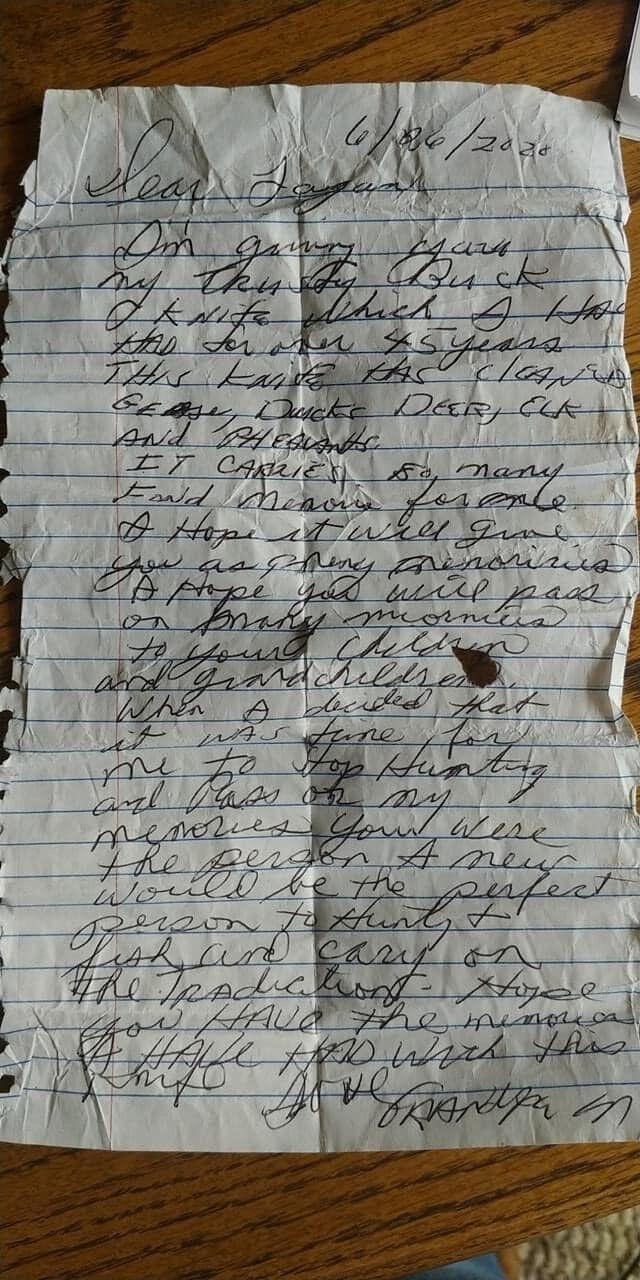 6/26/2020
Dear
I'm giving you
my trusty Buck
Knife which I HAve
HAD for over 45 years
THIS KNIFE HAS CLEANED
Geese, Ducks DEER, ELK
AND PHEASANTS.
IT CARRIES so many
Fond Memorie for me
I Hope it will give
you as many memoriries
I Hope you will pass
on many
to your Children
and grandchildren.
When I decided that
it WAS time for
me to Stop Hunting
and Pass on my
memories you were
the person I new
would be the perfect
person to Hunt, +
fish and cary on
the TRADICATION - Hope
you HAVE the memories
I HAVE HAD with this
Knife
Love GRANDPA